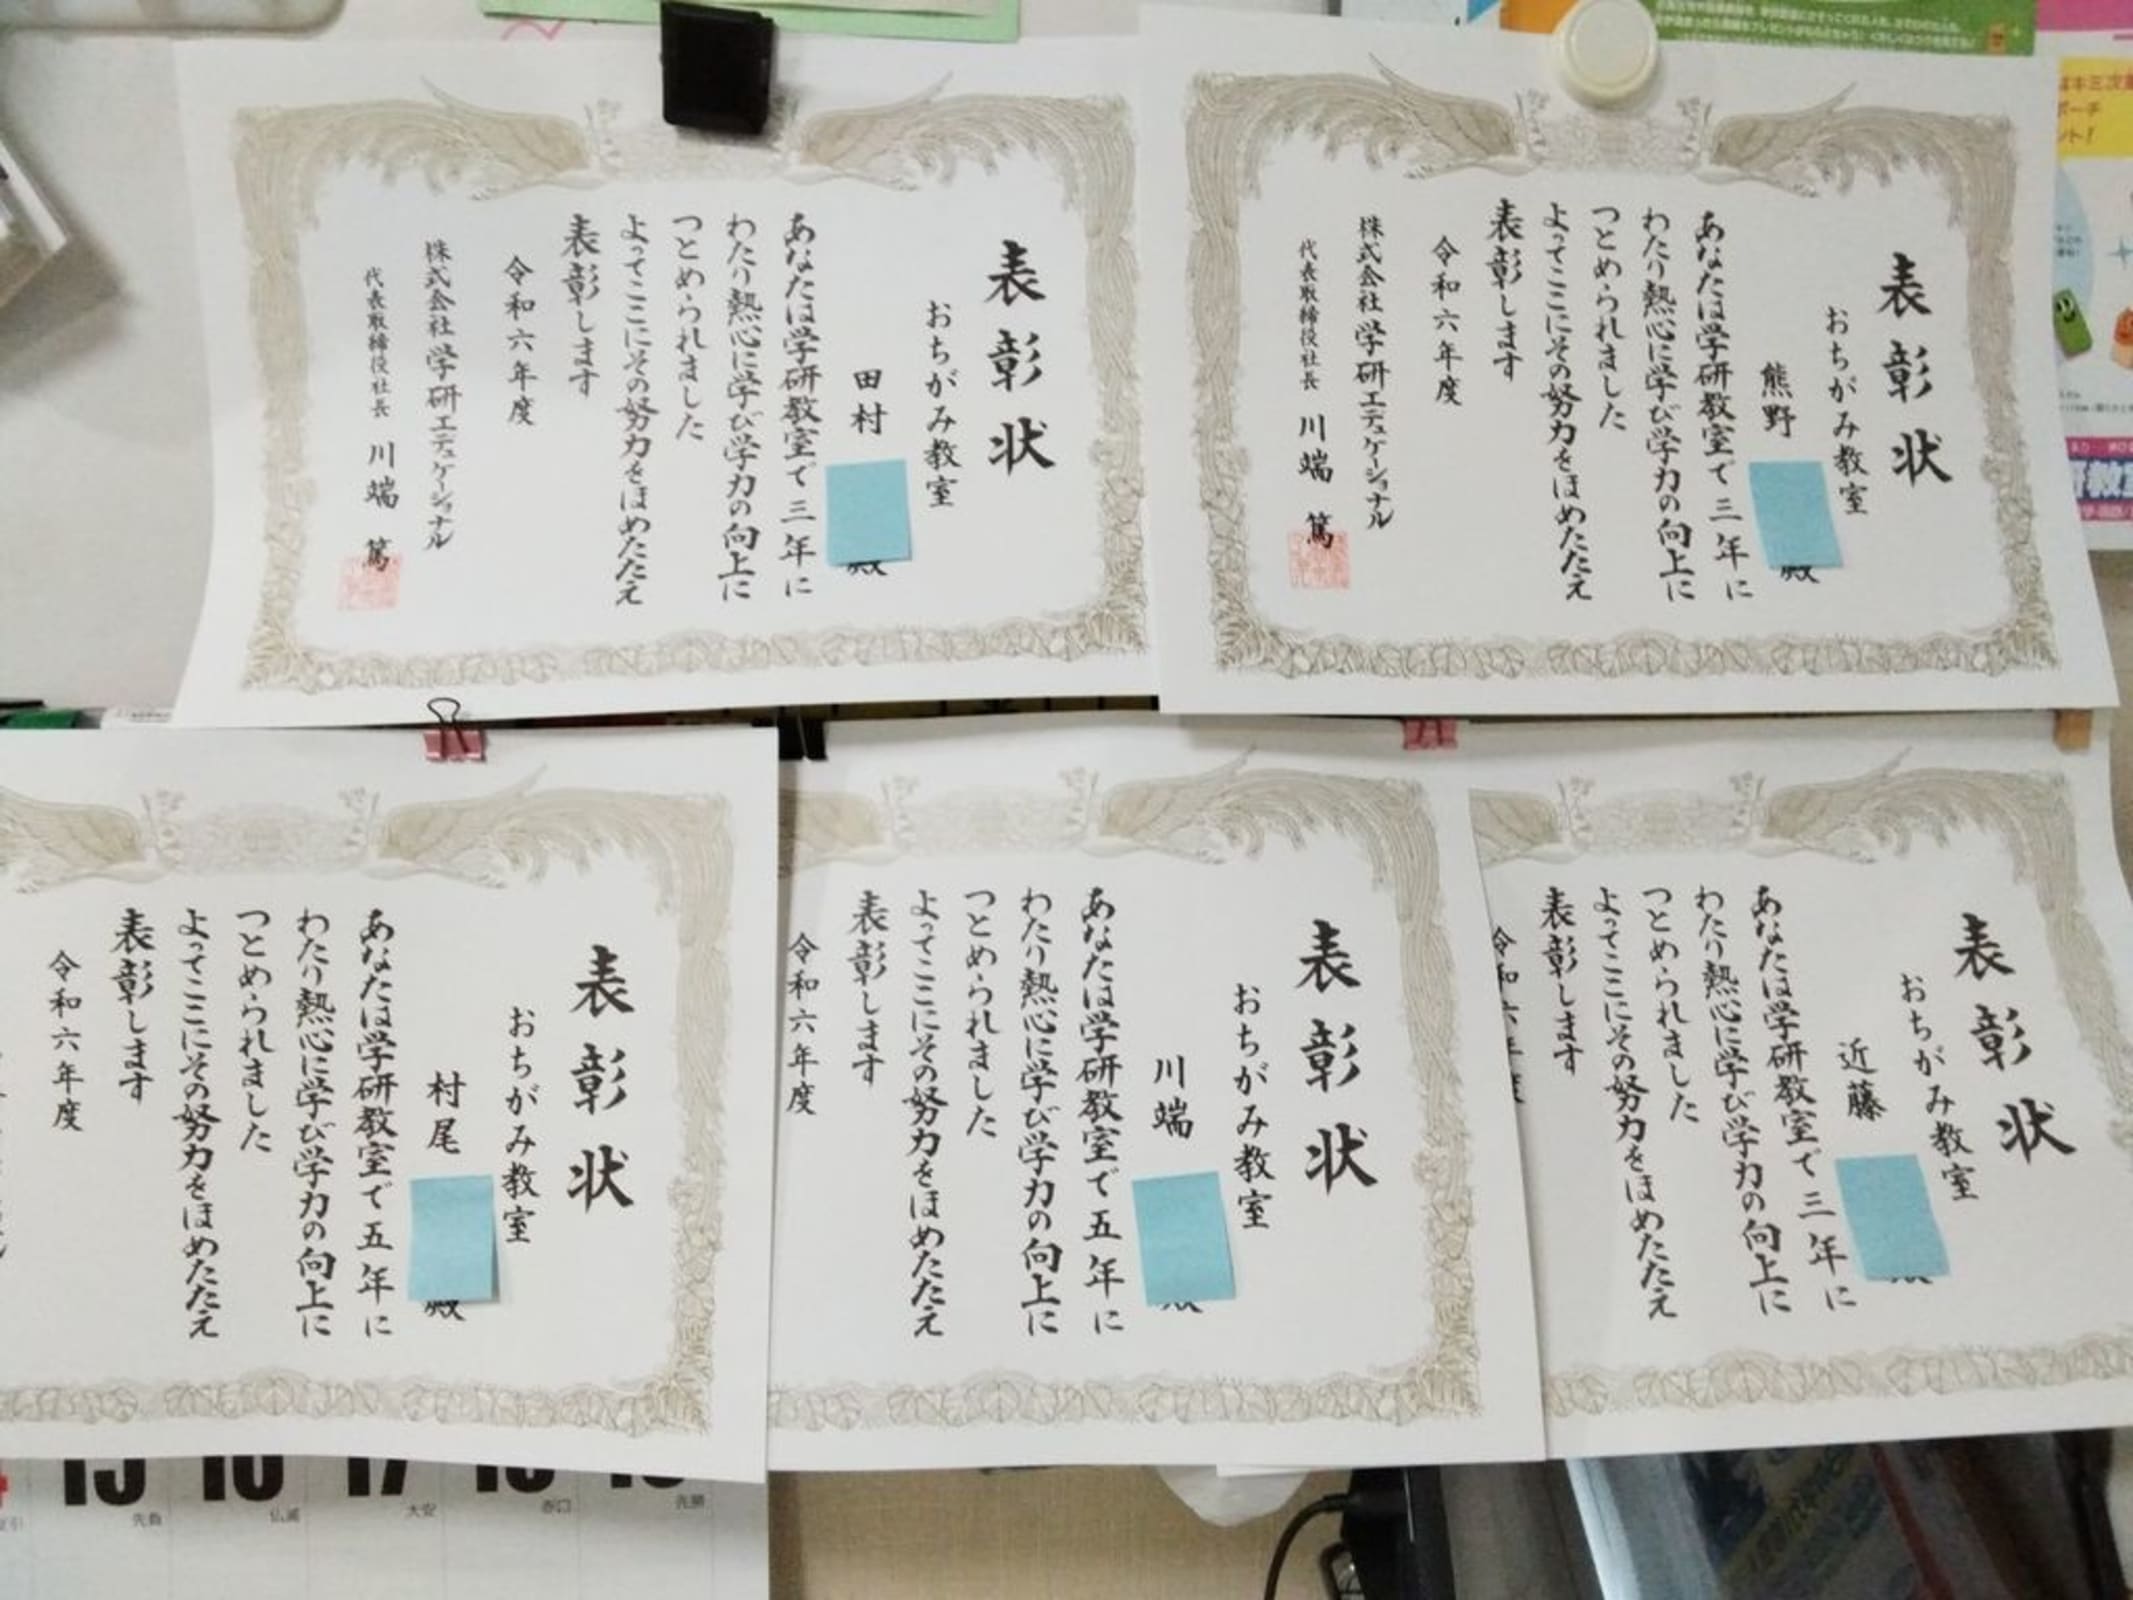 表彰状
おちがみ教室
田村
殿
あなたは学研教室で三年に
わたり熱心に学び学力の向上に
つとめられました
よってここにその努力をほめたたえ
表彰します
令和六年度
株式会社学研エデュケーショナル
代表取締役社長 川端 篤
表彰状
おちがみ教室
熊野
殿
あなたは学研教室で三年に
わたり熱心に学び学力の向上に
つとめられました
よってここにその努力をほめたたえ
表彰します
令和六年度
株式会社学研エデュケーショナル
代表取締役社長 川端 篤
表彰状
おちがみ教室
村尾
殿
あなたは学研教室で五年に
わたり熱心に学び学力の向上に
つとめられました
よってここにその努力をほめたたえ
表彰します
令和六年度
表彰状
おちがみ教室
川端
あなたは学研教室で五年に
わたり熱心に学び学力の向上に
つとめられました
よってここにその努力をほめたたえ
表彰します
令和六年度
表彰状
おちがみ教室
近藤
あなたは学研教室で三年に
わたり熱心に学び学力の向上に
つとめられました
よってここにその努力をほめたたえ
表彰します
令和六年度
15 16 17
先負 仏滅 大安 赤口 先勝